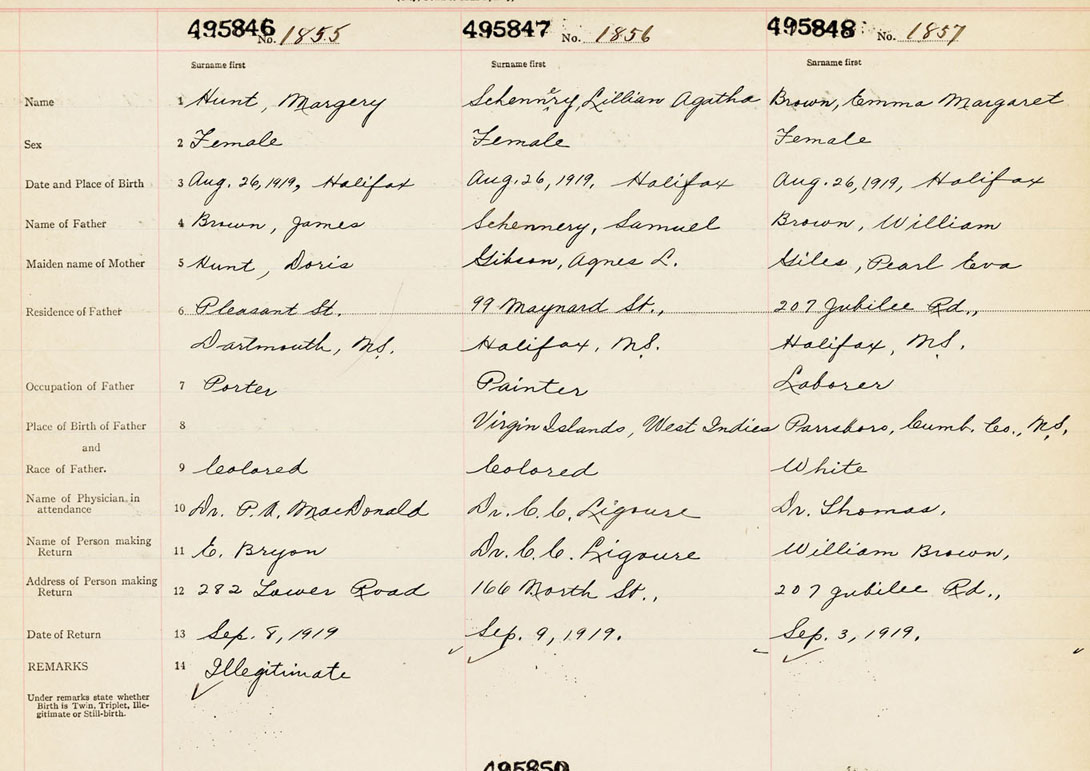 495846 No. 1855 495847 No. 1856 495848 No. 1857
Surname first Surname first Surname first
Name 1 Hunt, Margery Schennery, Lillian Agatha Brown, Emma Margaret
Sex 2 Female Female Female
Date and Place of Birth 3 Aug. 26, 1919, Halifax Aug. 26, 1919, Halifax Aug. 26, 1919, Halifax
Name of Father 4 Brown, James Schennery, Samuel Brown, William
Maiden name of Mother 5 Hunt, Doris Gibson, Agnes L. Giles, Pearl Eva
Residence of Father 6 Pleasant St. 99 Maynard St., 207 Jubilee Rd.,
Dartmouth, N.S. Halifax, N.S. Halifax, N.S.
Occupation of Father 7 Porter Painter Laborer
Place of Birth of Father 8 Virgin Islands, West Indies Parrsboro, Cumb. Co., N.S.
and
Race of Father. 9 Colored Colored White
Name of Physician in
attendance 10 Dr. P. A. MacDonald Dr. C. C. Ligoure Dr. Thomas,
Name of Person making
Return 11 E. Bryon Dr. C. C. Ligoure William Brown,
Address of Person making
Return 12 282 Lower Road 166 North St., 207 Jubilee Rd.,
Date of Return 13 Sep. 8, 1919 Sep. 9, 1919. Sep. 3, 1919.
REMARKS 14 Illegitimate
Under remarks state whether
Birth is Twin, Triplet, Ille-
gitimate or Still-birth.
495850